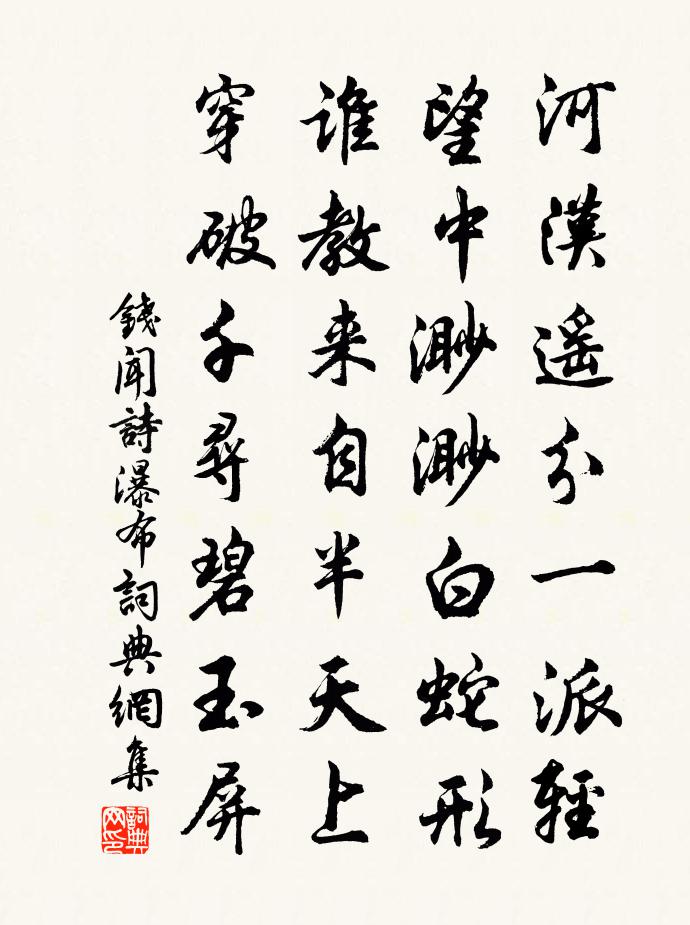 河漢遥分一派輕
望中渺渺白蛇形
誰教来自半天上
穿破千尋碧玉屏
錢聞詩瀑布詞典網集
詞典网印